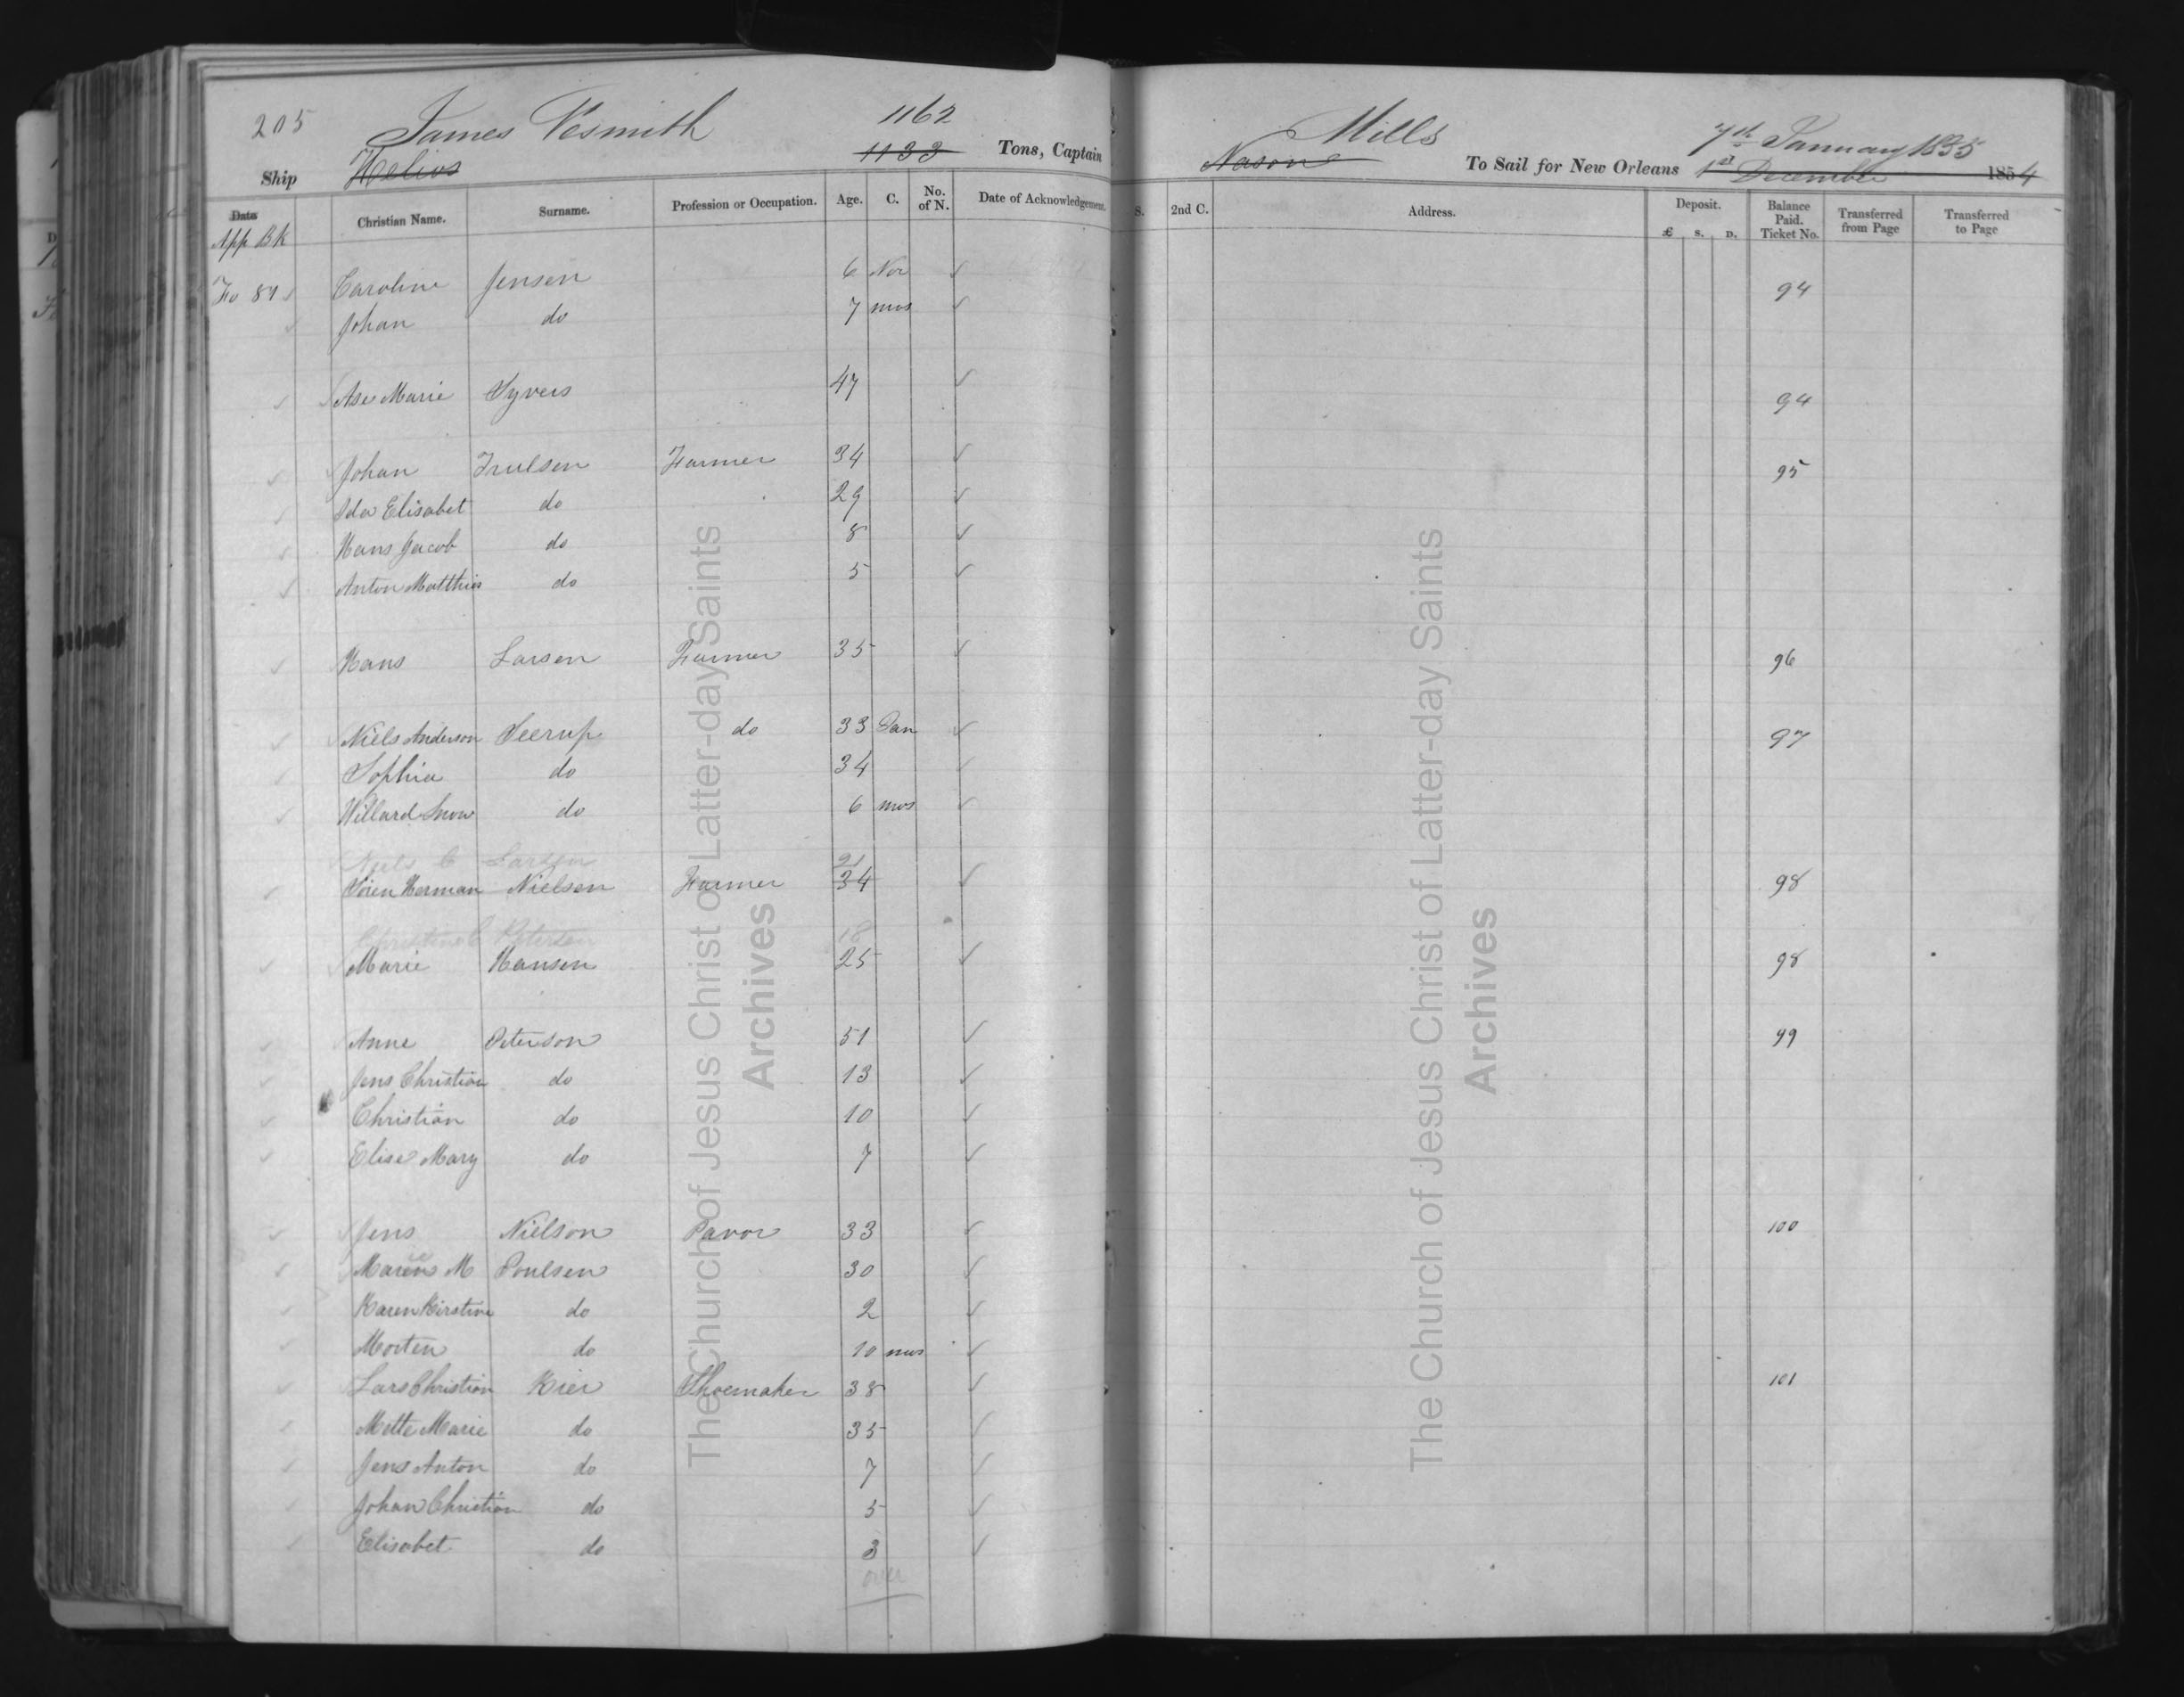 205 James Nesmith 1162 Mills 7th January 1855
Ship Helios 1133 Tons, Captain Nason To Sail for New Orleans 1st December 1854
Date Christian Name. Surname. Profession or Occupation. Age. C. No. of N. Date of Acknowledgement. S. 2nd C. Address. Deposit. £ S. D. Balance Paid. Ticket No. Transferred from Page Transferred to Page
App BK
Fo 87 Caroline Jensen 6 Nor 94
Johan do 7 mos
Ase Marie Syvers 47 94
Johan Trulsen Farmer 34 95
Ida Elisabet do 29
Hans Jacob do 8
Anton Matthias do 5
Hans Larsen Farmer 35 96
Niels Anderson Seerup do 33 Dan 97
Sophia do 34
Willard Snow do 6 mos
Niels C Larsen 21
Sören Herman Nielsen Farmer 34 98
Christine C Petersen 18
Marie Hansen 25 98
Anne Peterson 51 99
Jens Christian do 13
Christian do 10
Elise Mary do 7
Jens Nielson Pavor 33 100
Maren M Poulsen 30
Karen Kirstine do 2
Morten do 10 mos
Lars Christian Kier Shoemaker 38 101
Mette Marie do 35
Jens Anton do 7
Johan Christian do 5
Elisabet do 3
over
The Church of Jesus Christ of Latter-day Saints
Archives
The Church of Jesus Christ of Latter-day Saints
Archives